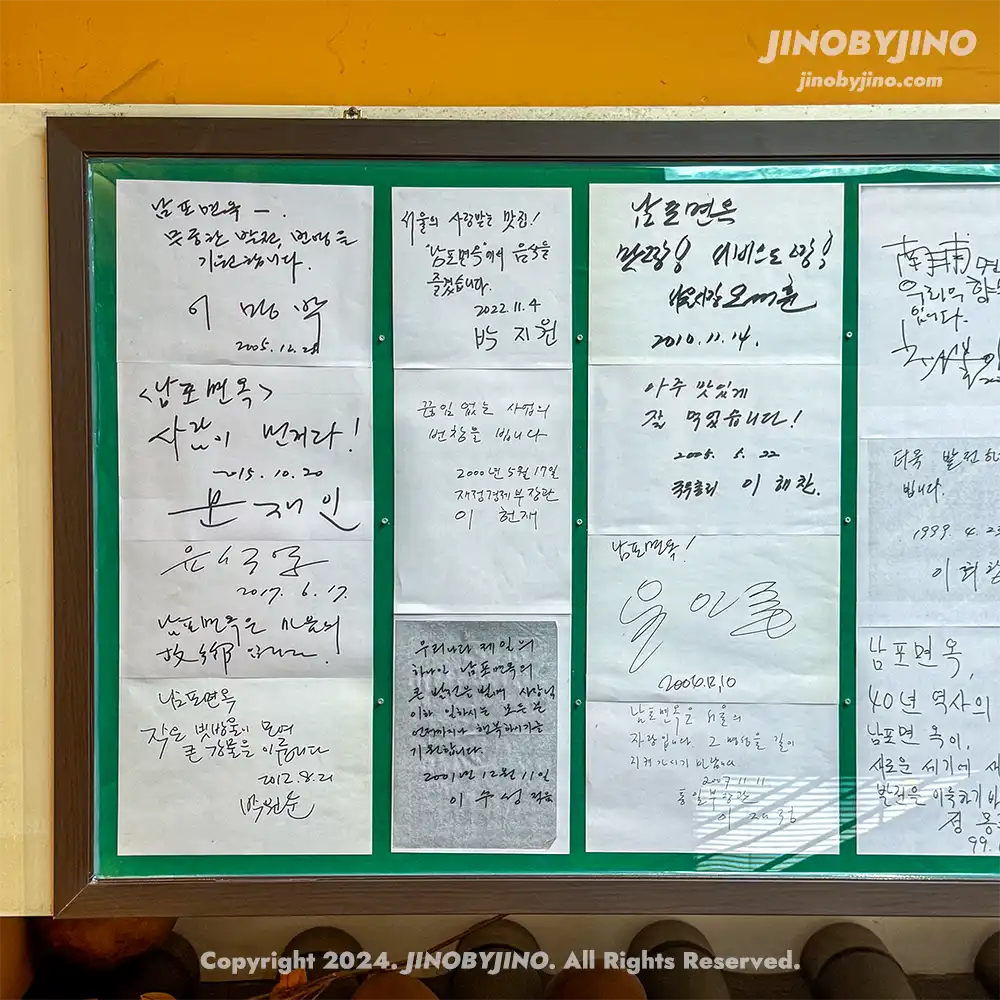 JINOBYJINO
jinobyjino.com
남포면옥 -.
무궁한 발전, 번영을
기원합니다.
이 명 박
2005. 12. 28
<남포면옥>
사람이 먼저다!
2015. 10. 20
문 재 인
2017. 6. 17.
남포면옥은 마음의
故鄕입니다.
남포면옥
작은 빗방울이 모여
큰 강물을 이룹니다
2012. 8. 21
박원순
서울의 사랑받는 맛집!
"남포면옥"에서 음식을
즐겼습니다.
2022. 11. 4
박 지 원
끊임 없는 사업의
번창을 빕니다
2000년 5월 17일
재정경제부장관
이 헌 재
우리나라 제일의
하나인 남포면옥의
큰 발전을 빌며 사장님
이하 일하시는 모든 분
언제까지나 행복하시기를
기원합니다.
2001년 12월 11일
이 수 성
남포면옥
맛짱! 서비스도 짱!
서울시장 오세훈
2010. 11. 14.
아주 맛있게
잘 먹었습니다!
2005. 5. 22
국무총리 이 해 찬.
남포면옥!
2006. 12. 10
남포면옥은 서울의
자랑입니다. 그 명성을 길이
지켜가시기 바랍니다
11. 11
통일부장관
이 재 정
南浦면
우리의 향
입니다.
더욱 발전하
빕니다.
1999. 4. 23
이 회 창
남포면옥,
40년 역사의
남포면옥이,
새로운 세기에 새
발전을 이룩하기 바
정 몽
99.
Copyright 2024. JINOBYJINO. All Rights Reserved.